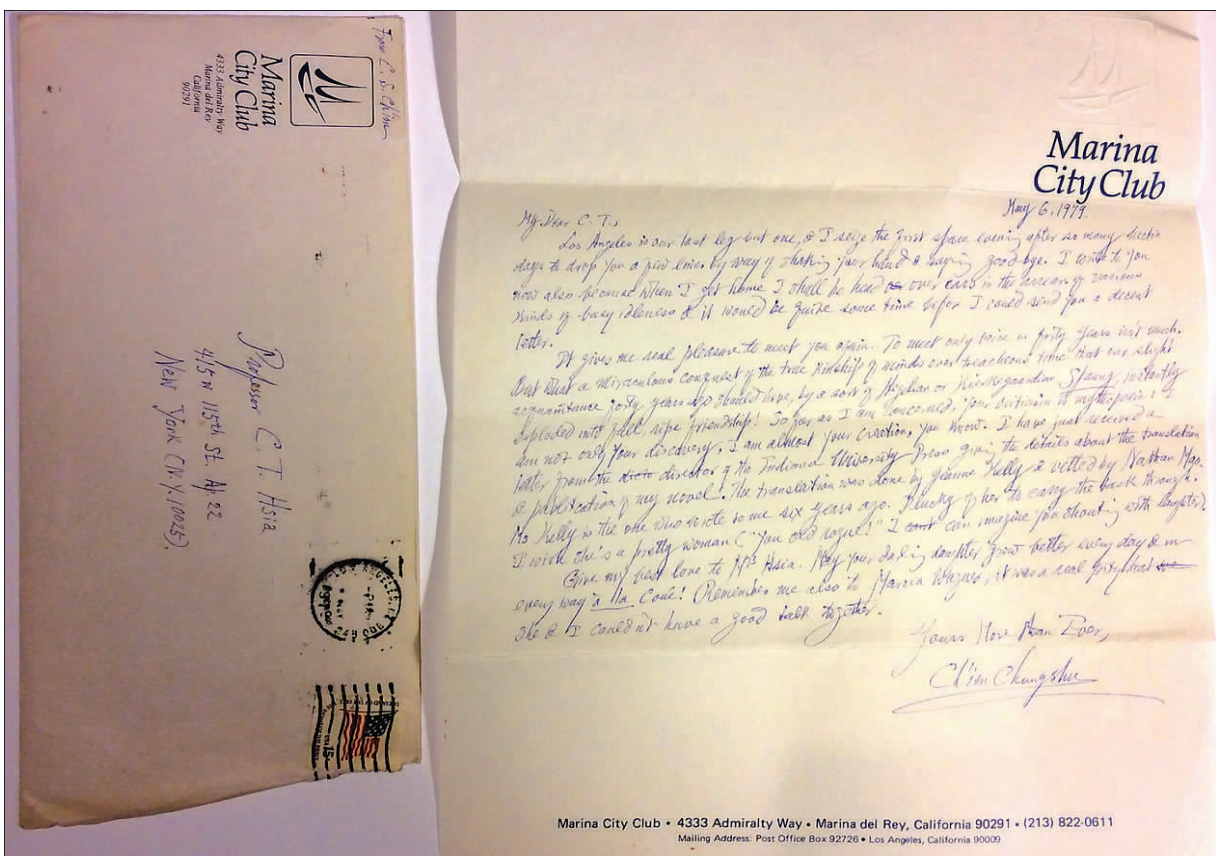 From C. S. Ch'ien
Marina
City Club
4333 Admiralty Way
Marina del Rey
California
90291
Professor C. T. Hsia
415 W 115th St. Ap. 22
New York (N.Y. 10025).
USA 15c
Marina
City Club
May 6, 1979.
My Dear C. T.,
Los Angeles is our last leg but one, & I seize the first spare evening after so many hectic
days to drop you a few lines by way of shaking your hand & saying good-bye. I write to you
now also because when I get home I shall be head over ears in the arrears of various
kinds of busy idleness & it would be quite some time before I could send you a decent
letter.
It gives me real pleasure to meet you again. To meet only twice in forty years isn't much.
But what a miraculous conquest of the true kinship of minds over treacherous time that our slight
acquaintance forty years ago should have, by a sort of Hegelian or Kierkegaardian Sprung, instantly
exploded into full, ripe friendship! So far as I am concerned, your criticism is mythopoeic: I
am not only your discovery, I am almost your creation, you know. I have just received a
letter from the director of the Indiana University Press giving the details about the translation
& publication of my novel. The translation was done by Jeanne Kelly & vetted by Nathan Mao.
Ms Kelly is the one who wrote some six years ago. Plucky of her to carry the task through.
I wish she's a pretty woman ("You old rogue!" I can imagine you shouting with laughter).
Give my best love to Mrs Hsia. May your darling daughter grow better every day & in
every way à la Coué! Remember me also to Marcia Wagner, it was a real pity that
she & I couldn't have a good talk together.
Yours More than Ever,
Ch'ien Chungshu
Marina City Club • 4333 Admiralty Way • Marina del Rey, California 90291 • (213) 822-0611
Mailing Address: Post Office Box 92726 • Los Angeles, California 90009